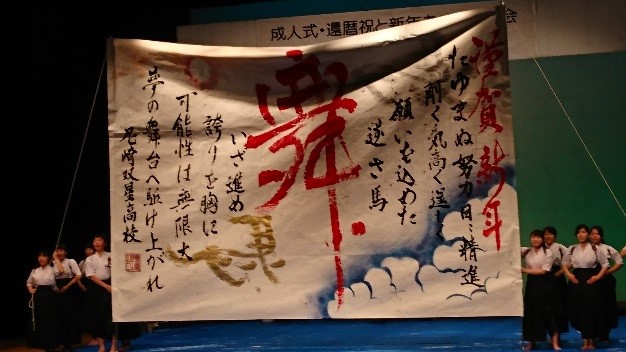 成人式・還暦祝と新年 会
謹賀新年
たゆまぬ努力日々精進
く気高く逞しく
願いを込めた
逆さ馬
舞
いざ進め
誇りを胸に
可能性は無限大
夢の舞台へ駆け上がれ
尼崎双星高校